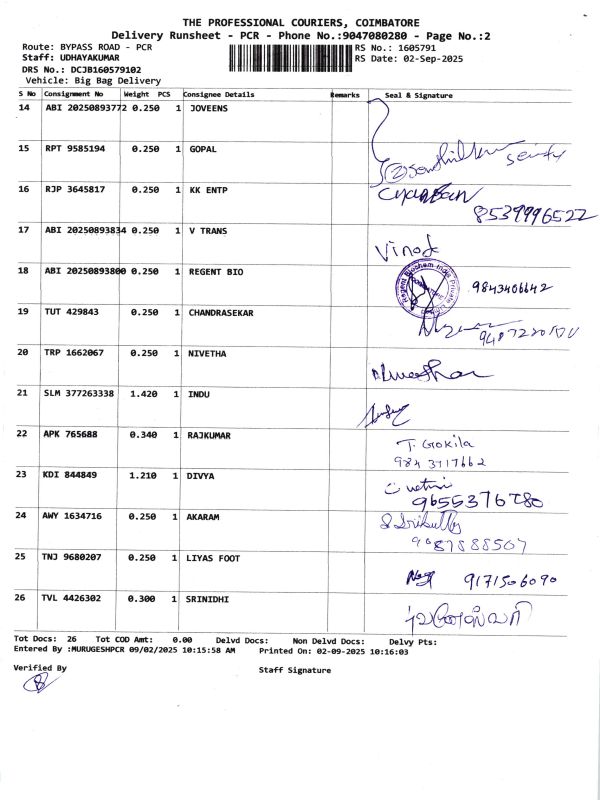 THE PROFESSIONAL COURIERS, COIMBATORE
Delivery Runsheet - PCR - Phone No.:9047080280 - Page No.:2
Route: BYPASS ROAD - PCR
RS No.: 1605791
Staff: UDHAYAKUMAR
RS Date: 02-Sep-2025
DRS No.: DCJB160579102
Vehicle: Big Bag Delivery
S No Consignment No Weight PCS Consignee Details Remarks Seal & Signature
14 ABI 20250893772 0.250 1 JOVEENS
15 RPT 9585194 0.250 1 GOPAL
16 RJP 3645817 0.250 1 KK ENTP
8539996522
17 ABI 20250893834 0.250 1 V TRANS
Vinod
18 ABI 20250893800 0.250 1 REGENT BIO
9843406642
19 TUT 429843 0.250 1 CHANDRASEKAR
20 TRP 1662067 0.250 1 NIVETHA
21 SLM 377263338 1.420 1 INDU
22 APK 765688 0.340 1 RAJKUMAR
T. Gokila
984 3717662
23 KDI 844849 1.210 1 DIVYA
9655376780
24 AWY 1634716 0.250 1 AKARAM
25 TNJ 9680207 0.250 1 LIYAS FOOT
9171506090
26 TVL 4426302 0.300 1 SRINIDHI
Tot Docs: 26 Tot COD Amt: 0.00 Delvd Docs: Non Delvd Docs: Delvy Pts:
Entered By :MURUGESHPCR 09/02/2025 10:15:58 AM Printed On: 02-09-2025 10:16:03
Verified By
Staff Signature